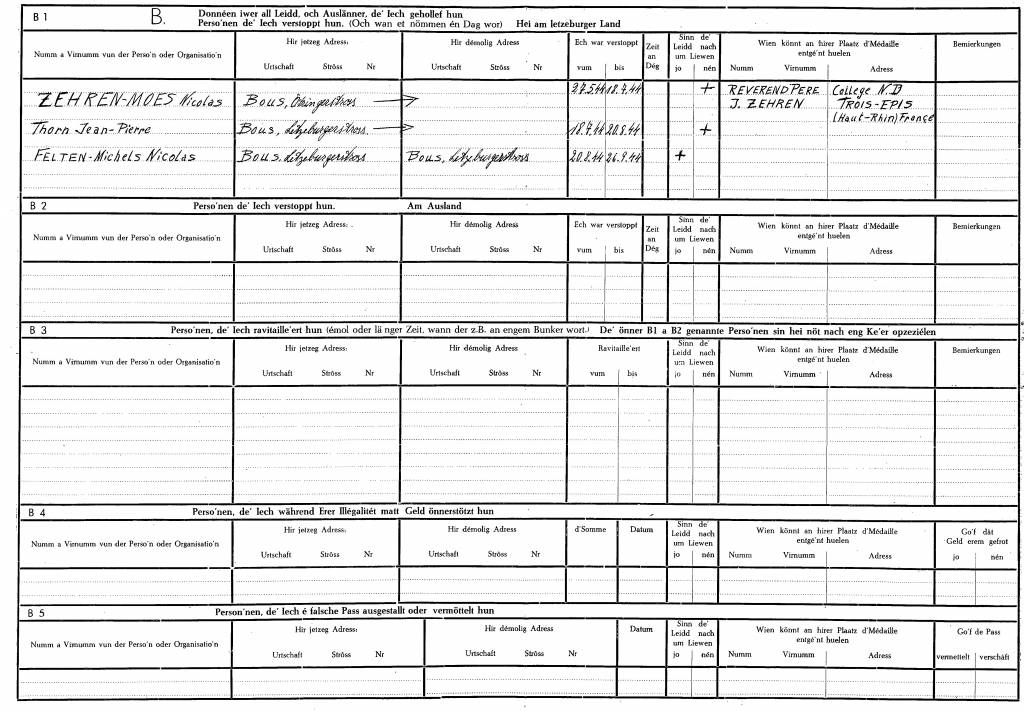 B 1
B.
Donnéen iwer all Leidd, och Auslänner, de' Iech gehollef hun
Perso'nen de' Iech verstoppt hun. (Och wan et nömmen én Dag wor) Hei am letzeburger Land
Numm a Virnumm vun der Perso'n oder Organisatio'n
Hir jetzeg Adress:
Urtschaft Ströss Nr
Hir démolig Adress
Urtschaft Ströss Nr
Ech war verstoppt
vum bis
Zeit
an
Dég
Sinn de'
Leidd nach
um Liewen
jo nén
Wien könnt an hirer Plaatz d'Médaille
entgé'nt huelen
Numm Virnumm Adress
Bemierkungen
ZEHREN-MOES Nicolas Bous, 27.5.44 18.7.44 + REVEREND PERE College N.D
J. ZEHREN TROIS-EPIS
(Haut-Rhin) France
Thorn Jean-Pierre Bous, Letzeburgerstross 18.7.44 20.8.44 +
FELTEN-Michels Nicolas Bous, Letzeburgerstross Bous, Letzeburgerstross 20.8.44 26.9.44 +
B 2
Perso'nen de' Iech verstoppt hun. Am Ausland
Numm a Virnumm vun der Perso'n oder Organisatio'n
Hir jetzeg Adress:
Urtschaft Ströss Nr
Hir démolig Adress
Urtschaft Ströss Nr
Ech war verstoppt
vum bis
Zeit
an
Dég
Sinn de'
Leidd nach
um Liewen
jo nén
Wien könnt an hirer Plaatz d'Médaille
entgé'nt huelen
Numm Virnumm Adress
Bemierkungen
B 3
Perso'nen, de' Iech ravitaille'ert hun (émol oder länger Zeit, wann der z.B. an engem Bunker wort.) De' önner B1 a B2 genannte Perso'nen sin hei nöt nach eng Ke'er opzeziélen
Numm a Virnumm vun der Perso'n oder Organisatio'n
Hir jetzeg Adress:
Urtschaft Ströss Nr
Hir démolig Adress
Urtschaft Ströss Nr
Ravitaille'ert
vum bis
Sinn de'
Leidd nach
um Liewen
jo nén
Wien könnt an hirer Plaatz d'Médaille
entgé'nt huelen
Numm Virnumm Adress
Bemierkungen
B 4
Perso'nen, de' Iech während Erer Illégalitét matt Geld önnerstötzt hun
Numm a Virnumm vun der Perso'n oder Organisatio'n
Hir jetzeg Adress:
Urtschaft Ströss Nr
Hir démolig Adress
Urtschaft Ströss Nr
d'Somme
Datum
Sinn de'
Leidd nach
um Liewen
jo nén
Wien könnt an hirer Plaatz d'Médaille
entgé'nt huelen
Numm Virnumm Adress
Go'f dât
Geld erem gefrot
jo nén
B 5
Person'nen, de' Iech é falsche Pass ausgestallt oder vermöttelt hun
Numm a Virnumm vun der Perso'n oder Organisatio'n
Hir jetzeg Adress:
Urtschaft Ströss Nr
Hir démolig Adress
Urtschaft Ströss Nr
Datum
Sinn de'
Leidd nach
um Liewen
jo nén
Wien könnt an hirer Plaatz d'Médaille
entgé'nt huelen
Numm Virnumm Adress
Go'f de Pass
vermettelt verschâft